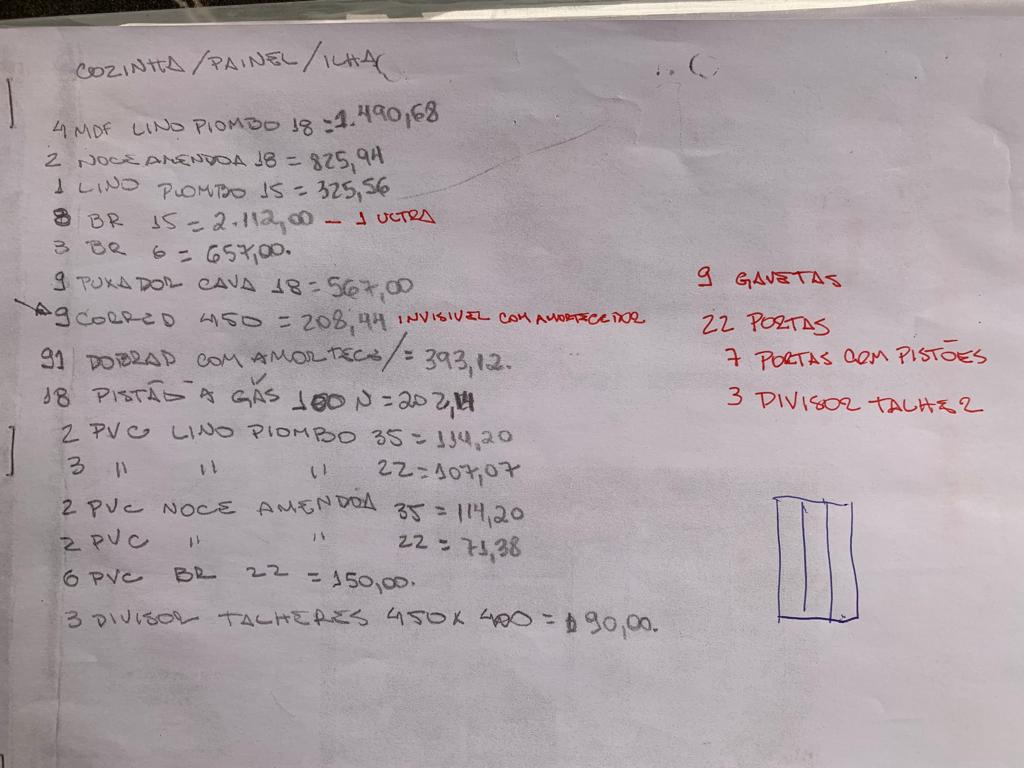 COZINHA/PAINEL/ILHA
4 MDF LINO PIOMBO 18 = 1.490,68
2 NOCE AMENDOA 18 = 825,94
1 LINO PIOMBO 15 = 325,56
8 BR 15 = 2.112,00 - 1 ULTRA
3 BR 6 = 657,00.
9 PUXADOR CAVA 18 = 567,00
9 CORRED 450 = 208,44 INVISIVEL COM AMORTECEDOR
91 DOBRAD COM AMORTEC / = 393,12.
18 PISTÃO A GÁS 100 N = 202,14
2 PVC LINO PIOMBO 35 = 114,20
3 " " " 22 = 107,07
2 PVC NOCE AMENDOA 35 = 114,20
2 PVC " " 22 = 71,38
6 PVC BR 22 = 150,00.
3 DIVISOR TALHERES 450 X 400 = 90,00.
9 GAVETAS
22 PORTAS
7 PORTAS COM PISTÕES
3 DIVISOR TALHER